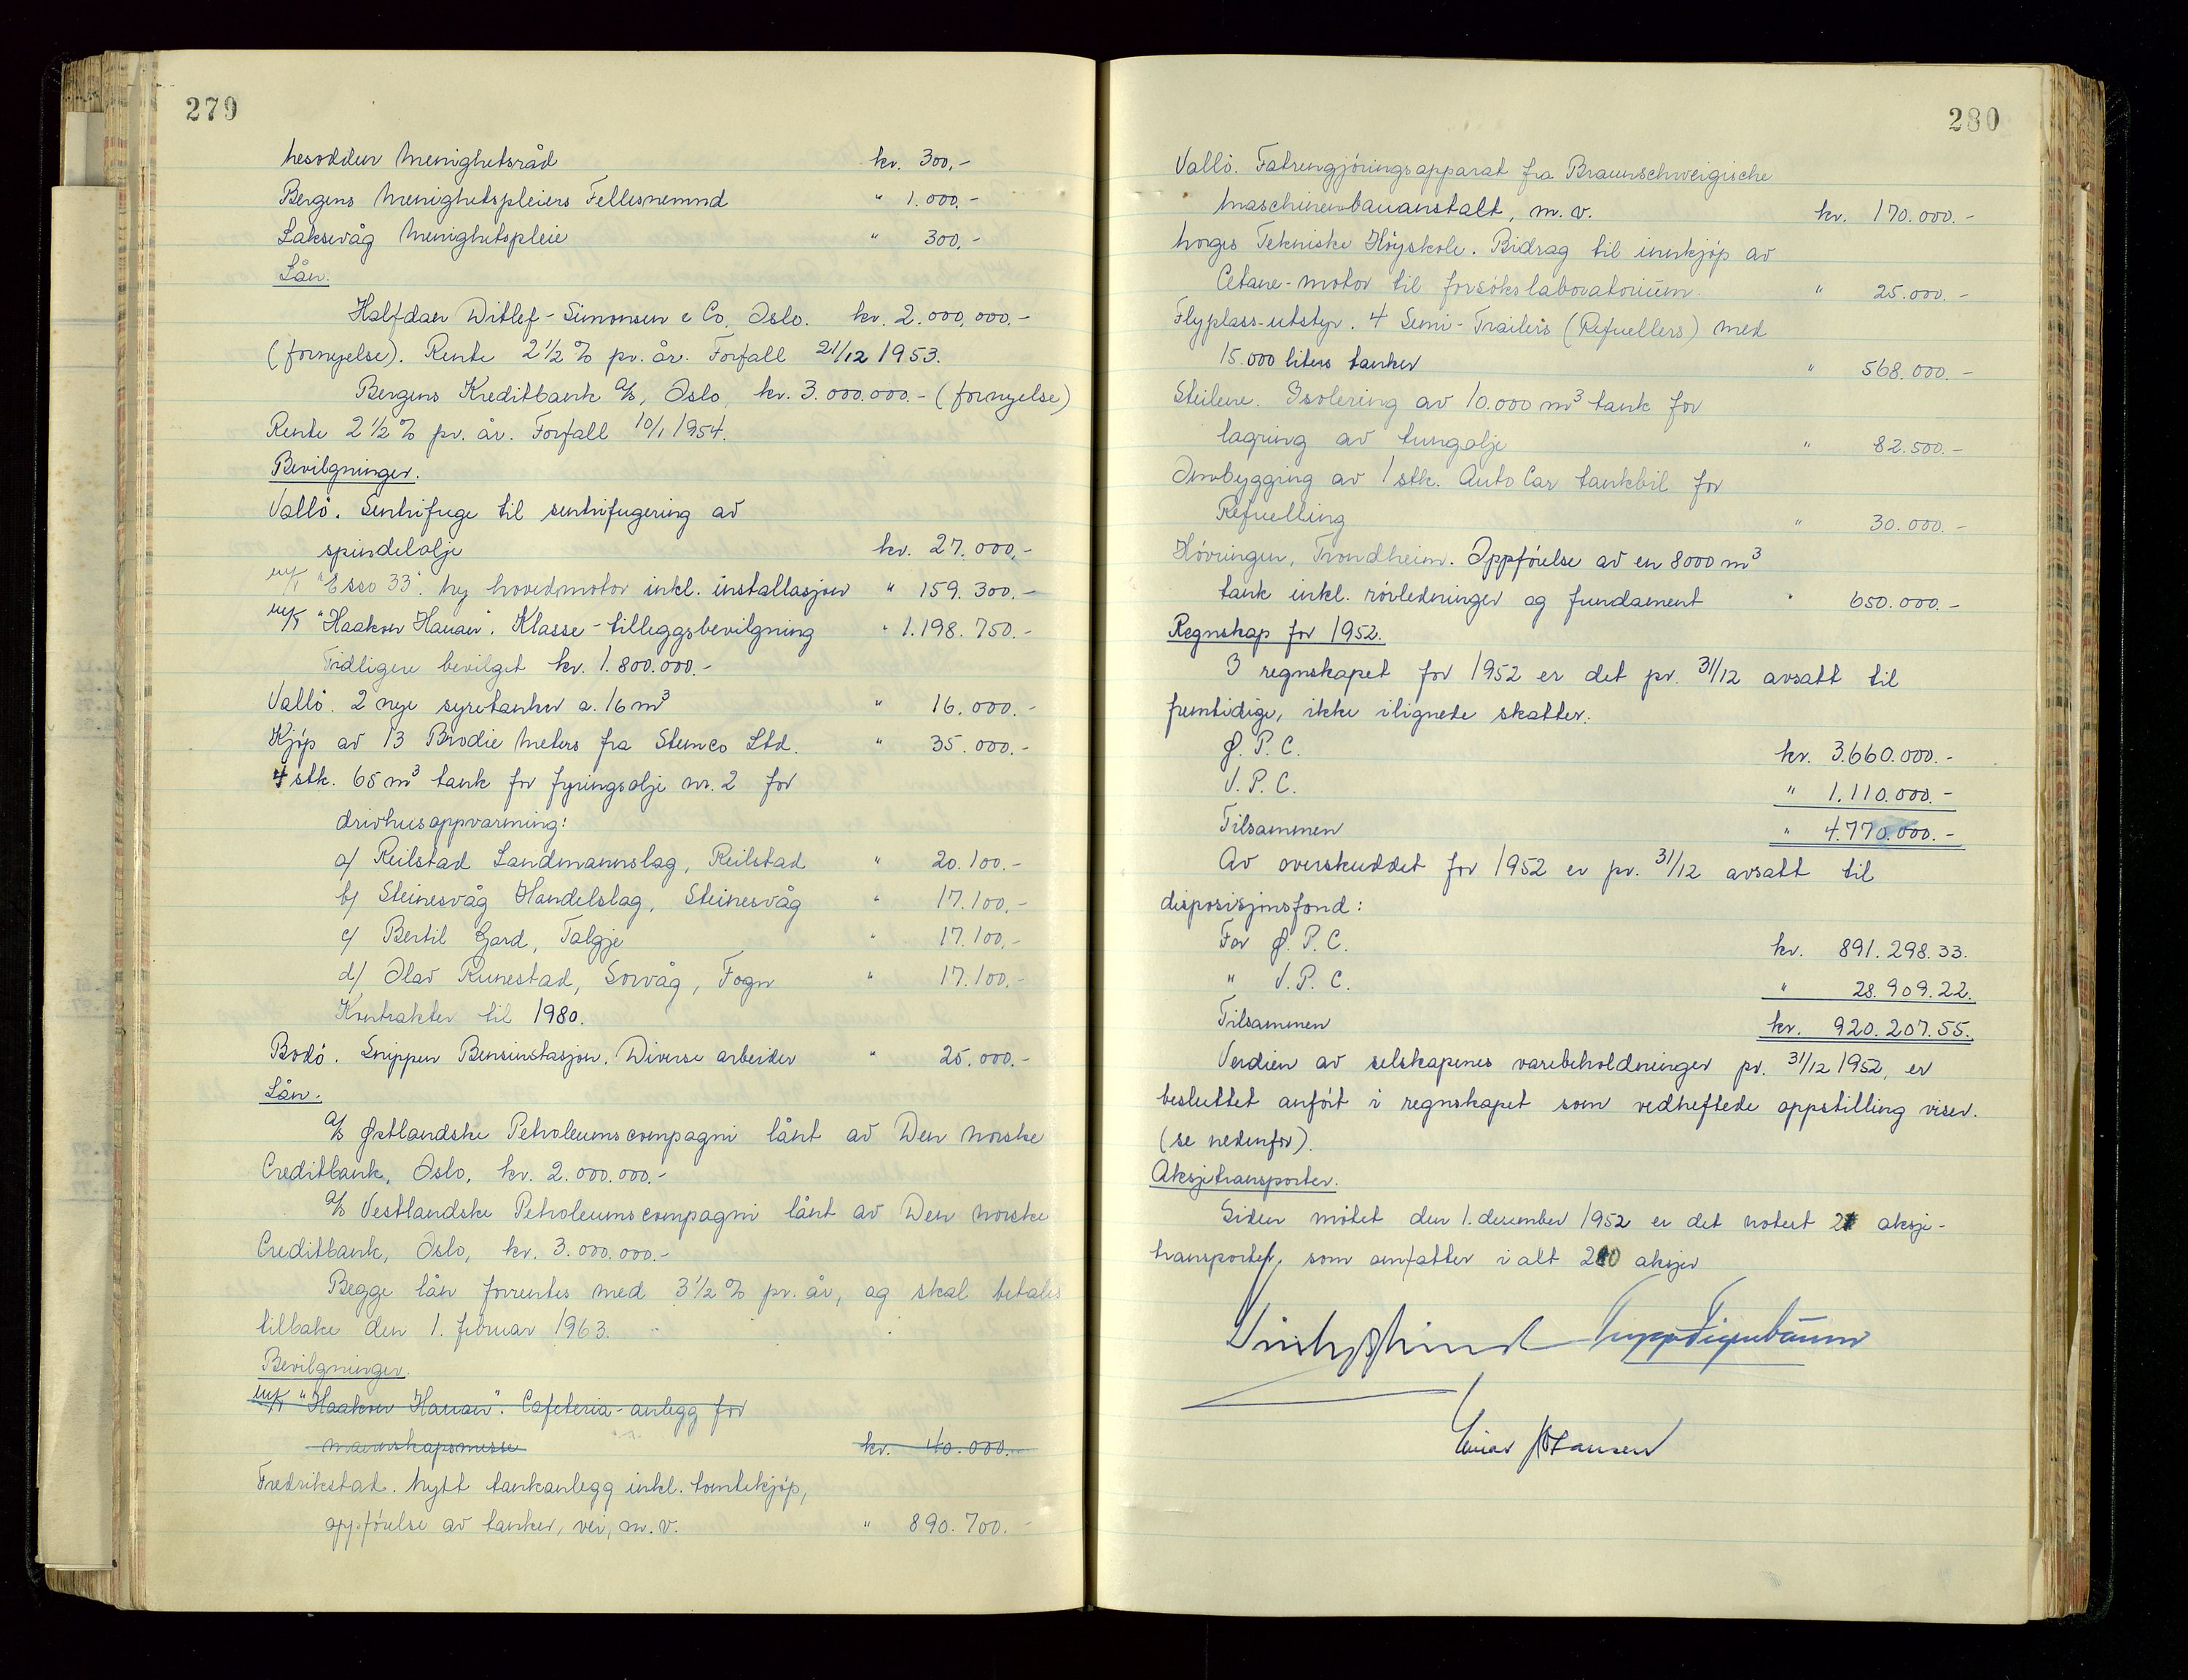 279
Nesodden Menighetsråd kr. 300.-
Bergens Menighetspleiers Fellesnemnd " 1.000.-
Laksevåg Menighetspleie " 300.-
Lån.
Halfdan Ditlef-Simonsen & Co, Oslo. kr. 2.000.000.-
(fornyelse). Rente 2 1/2 % pr. år. Forfall 21/12 1953.
Bergens Kreditbank A/S, Oslo, kr. 3.000.000.- (fornyelse)
Rente 2 1/2 % pr. år. Forfall 10/1 1954.
Bevilgninger.
Vallö. Sentrifuge til sentrifugering av
spindelolje kr. 27.000.-
M/T "Esso 33". Ny hovedmotor inkl. installasjon " 159.300.-
M/T "Haakon Hauan". Klasse-tilleggsbevilgning " 1.198.750.-
Tidligere bevilget kr. 1.800.000.-
Vallö. 2 nye syretanker a. 16 m³ " 16.000.-
Kjøp av 13 Brodie Meters fra Stemco Ltd. " 35.000.-
4 stk. 65 m³ tank for fyringsolje nr. 2 for
drivhusoppvarming:
a/ Reilstad Landmannslag, Reilstad " 20.100.-
b/ Steinesvåg Handelslag, Steinesvåg " 17.100.-
c/ Bertil Gard, Talgje " 17.100.-
d/ Olav Runestad, Sorvåg, Fogn " 17.100.-
Kontrakter til 1980.
Bodö. Snippen Bensinstasjon. Diverse arbeider " 25.000.-
Lån.
A/S Østlandske Petroleumscompagni lånt av Den norske
Creditbank, Oslo, kr. 2.000.000.-
A/S Vestlandske Petroleumscompagni lånt av Den norske
Creditbank, Oslo, kr. 3.000.000.-
Begge lån forrentes med 3 1/2 % pr. år, og skal betales
tilbake den 1. februar 1963.
Bevilgninger.
M/T "Haakon Hauan". Cafeteria-anlegg for
mannskapsmesse kr. 40.000.-
Fredrikstad. Nytt tankanlegg inkl. tomtekjøp,
oppförelse av tanker, vei, m.v. " 890.700.-
280
Vallö. Fatrengjöringsapparat fra Braunschweigische
Maschinenbauanstalt, m.v. kr. 170.000.-
Norges Tekniske Høyskole. Bidrag til innkjøp av
Cetane-motor til forsökslaboratorium. " 25.000.-
Flyplass-utstyr. 4 Semi-Trailers (Refuellers) med
15.000 liters tanker " 568.000.-
Steilene. Isolering av 10.000 m³ tank for
lagring av tungolje " 82.500.-
Ombygging av 1 stk. Auto Car tankbil for
Refuelling " 30.000.-
Hövringen, Trondheim. Oppförelse av en 8000 m³
tank inkl. rörledninger og fundament " 650.000.-
Regnskap for 1952.
I regnskapet for 1952 er det pr. 31/12 avsatt til
fremtidige, ikke ilignede skatter:
Ø.P.C. kr. 3.660.000.-
V.P.C. " 1.110.000.-
Tilsammen " 4.770.000.-
Av overskuddet for 1952 er pr. 31/12 avsatt til
disposisjonsfond:
For Ø.P.C. kr. 891.298.33.
" V.P.C. " 28.909.22.
Tilsammen kr. 920.207.55.
Verdien av selskapenes varebeholdninger pr. 31/12 1952, er
besluttet anfört i regnskapet som vedheftede oppstilling viser.
(se nedenfor).
Aksjetransporter.
Siden mötet den 1. desember 1952 er det notert 2 aksje-
transporter, som omfatter i alt 210 aksjer
Einar Hansen